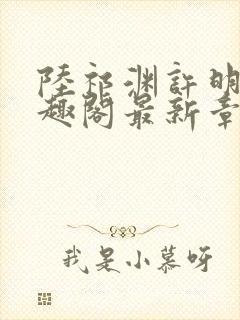 陸祁渊許明
趣閣最新章
我是小慕呀